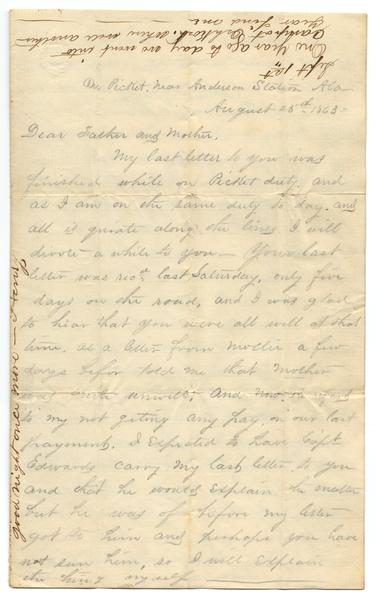 Sept 1st
One year ago to day we went into
Camp at Oshkosh. When will another
year find me.
On Picket, Near Anderson Station Ala
August 25th 1863-
Dear Father and Mother.
My last letter to you was
finished while on Picket duty, and
as I am on the same duty to day, and
all is quiate along the lines I will
devote a while to you - Your last
letter was recd. last Saturday, only five
days on the road, and I was glad
to hear that you were all well at that
time. as a letter from Mollie a few
days befor told me that Mother
was quite unwell, and now in regard
to my not geting any pay, in our last
payment. I expected to have Capt
Edwards carry my last letter to you
and that he would explain the matter
but he was of befor my letter
got to him and perhaps you have
not seen him, so I will explain
the thing myself
Good night once more - Henry